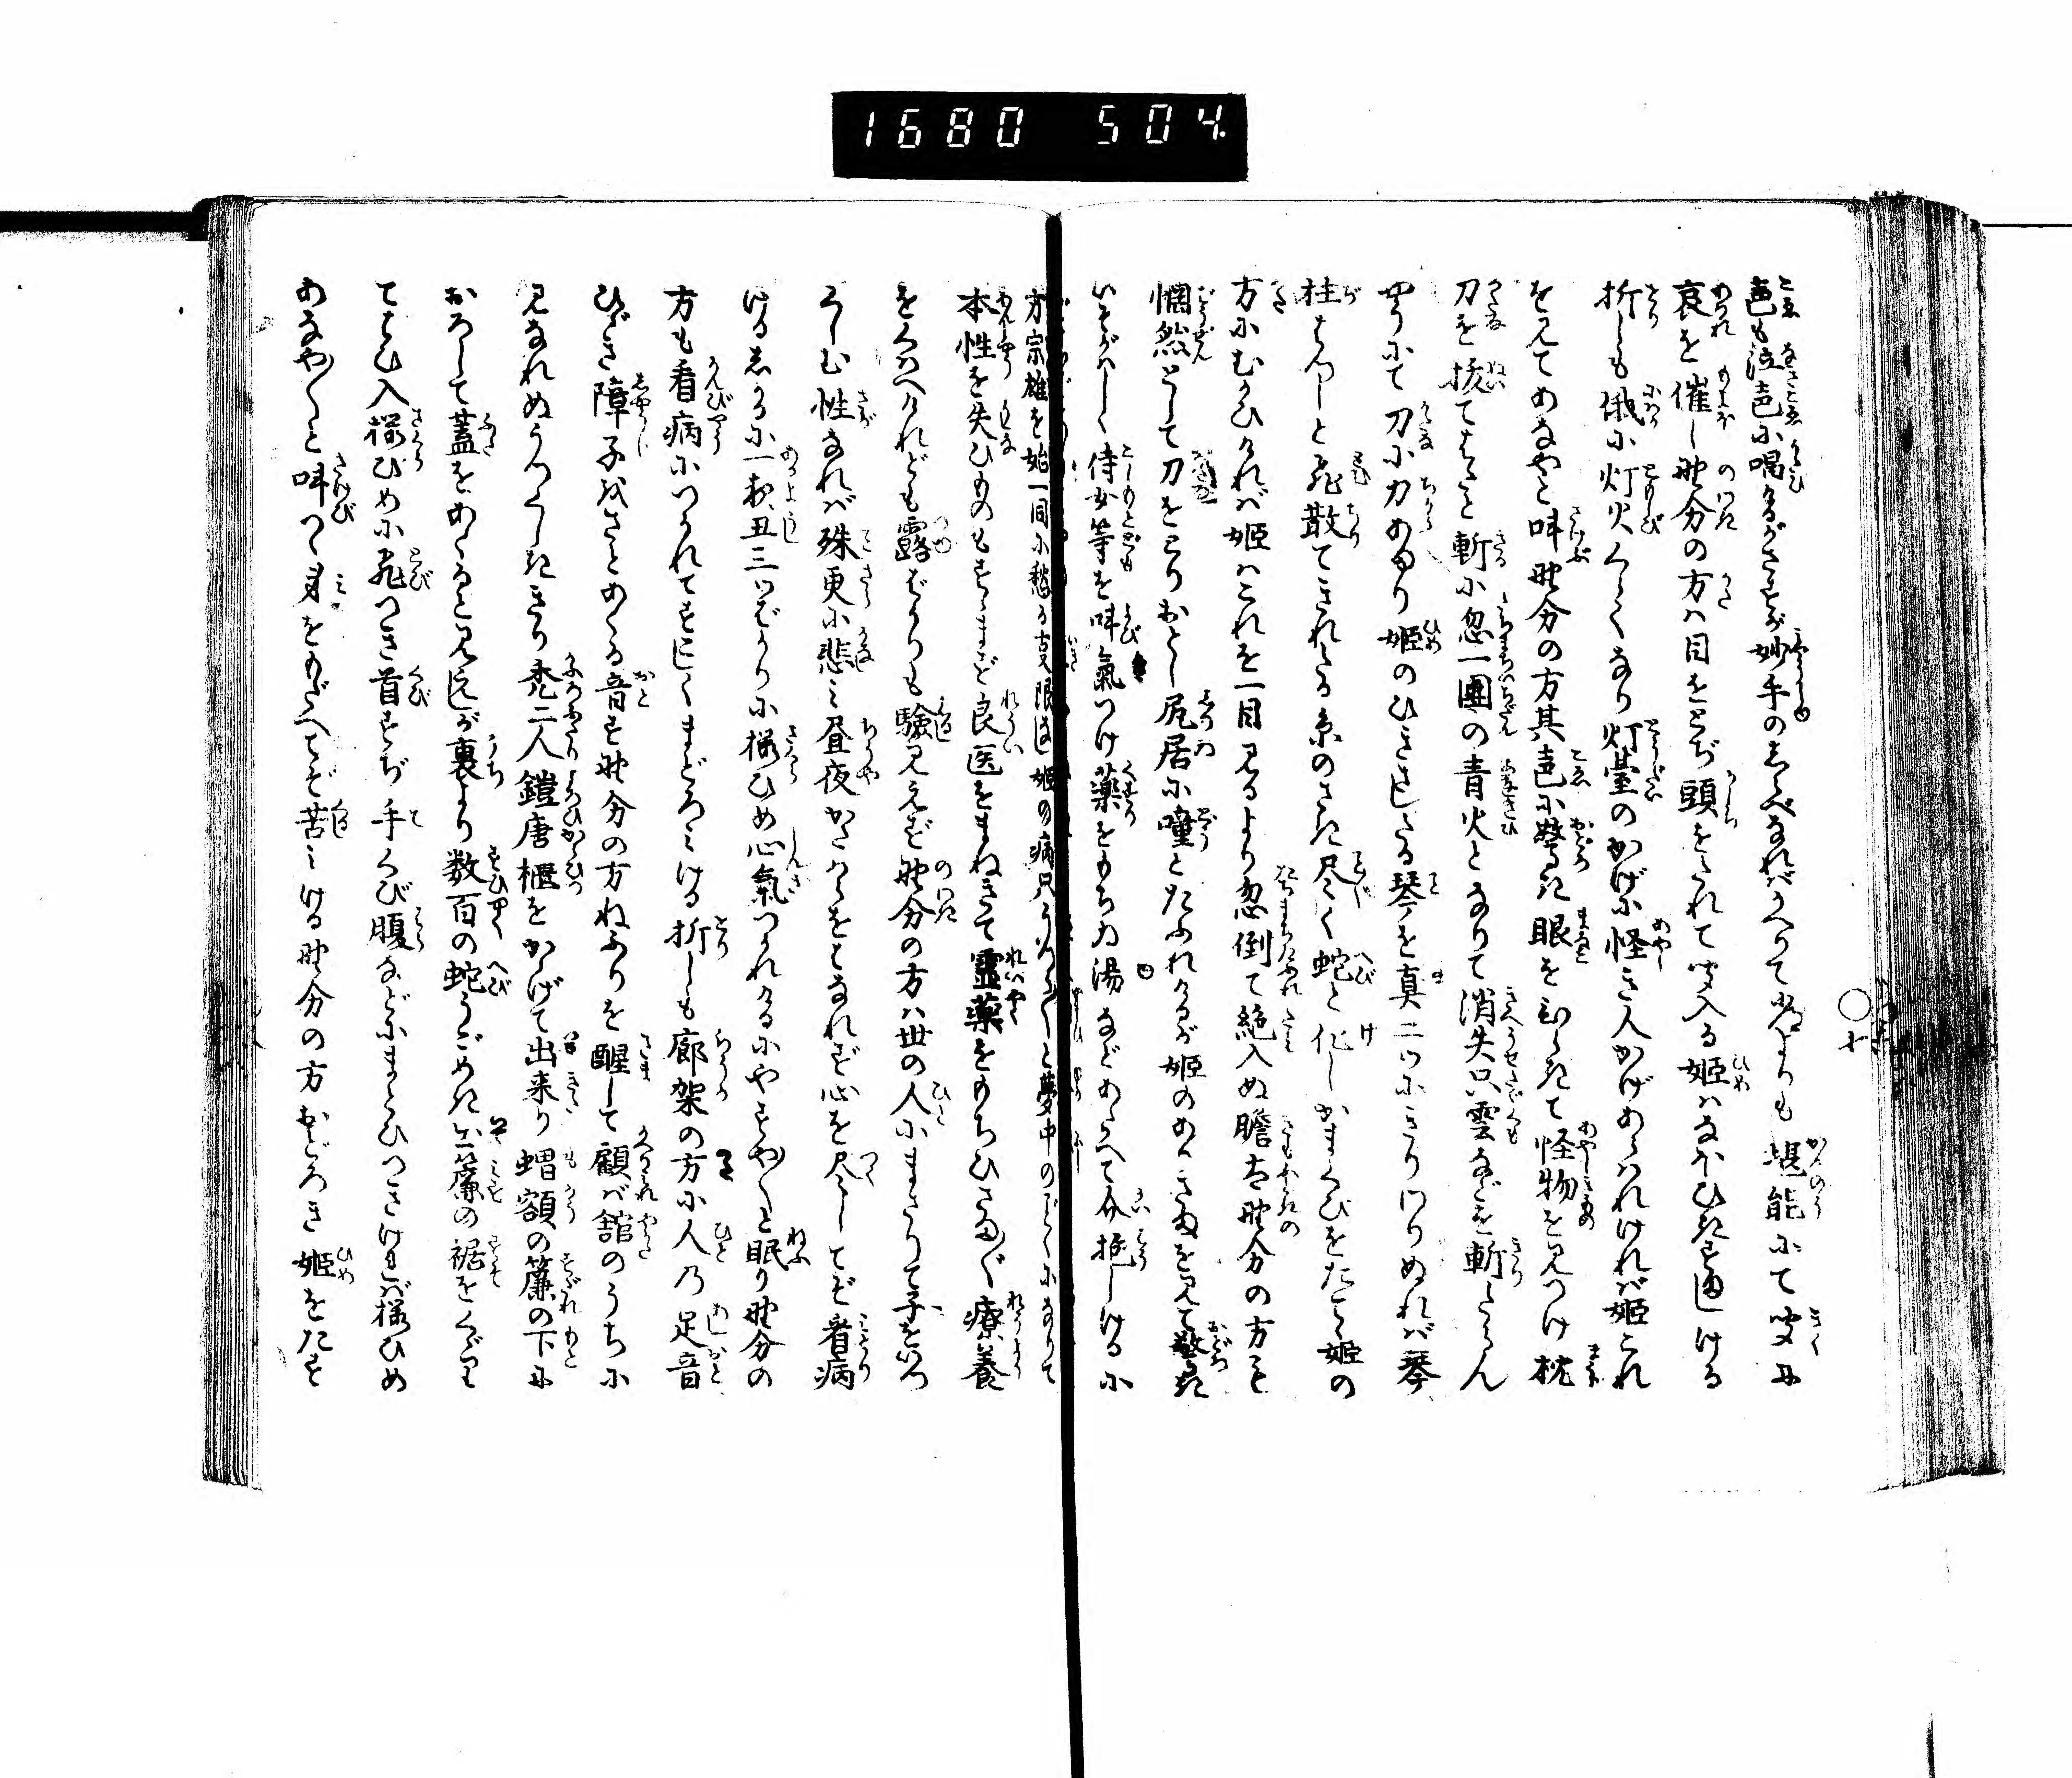 1680 504.
声も泣声に喝けるがさすが妙手のしらべなればかへりて常よりも堪能にて聞に
哀を催し野分の方は目をとぢ頭をたれて聞入る姫はなほひきすましける
折しも俄に灯火くらくなり灯台のかげに怪き人かげあらはれければ姫これ
を見てあなやと叫野分の方其声に驚き眼をひらきて怪物を見つけ枕
刀を抜てはたと斬に忽一團の青火となりて消失只雲などを斬たらん
やうにて刀に力あまり姫のひきさしたる琴を真二ツにきりわりぬれば琴
柱はらりと飛散てきれたる糸のさき尽く蛇と化しかまくびをたてゝ姫の
方にむかひければ姫はこれを一目見るより忽倒て絶入ぬ膽太野分の方も
惘然として刀をとりおとし尻居に噇とたふれけるが姫のありさまを見て驚き
いそがはしく侍女等を叫氣つけ薬をもちゐ湯などあたへて介抱しけるに
方宗雄を始一同に愁る事限なし姫の病只うか〳〵と夢中のごとくになりて
本性を失ひものもすゝまず良医をまねきて霊薬をもちひさま〴〵療養
をくはへけれども露ばかりも験見えず野分の方は世の人にまさりて子をいつ
くしむ性なれば殊更に悲み昼夜かたはらをはなれず心を尽してぞ看病
けるしかるに一夜丑三ツばかりに桜ひめ心氣つかれけるにやすや〳〵と眠り野分の
方も看病につかれてすこしくまどろみける折しも廊架の方に人乃足音
ひゞき障子をさとあくる音す野分の方ねふりを醒して顧ば舘のうちに
見なれぬうつくしききり禿二人鎧唐櫃をかゝげて出来り帽額の簾の下に
おろして蓋をあくると見えしが裏より数百の蛇うごめき出簾の裾をくゞりて
てはひ入桜ひめに飛つき首すぢ手くび腹などにまとひつきければ桜ひめ
あなや〳〵と叫つゝ身をもだへてぞ苦みける野分の方おどろき姫をたす